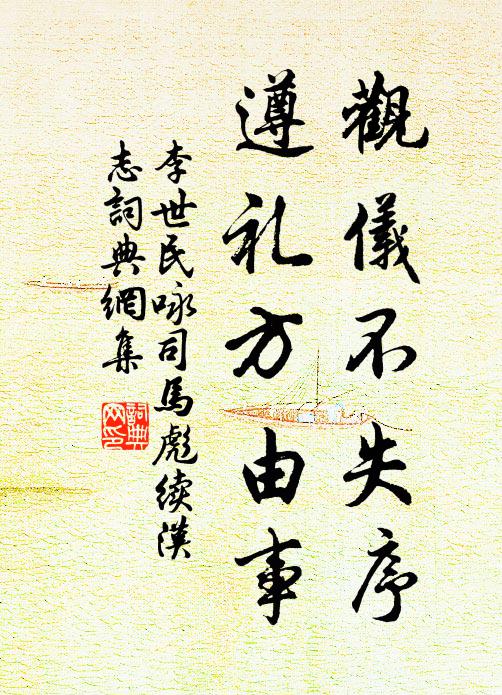 觀儀不失序
遵礼方由事
李世民咏司馬彪續漢
志詞典網集
詞典
网印